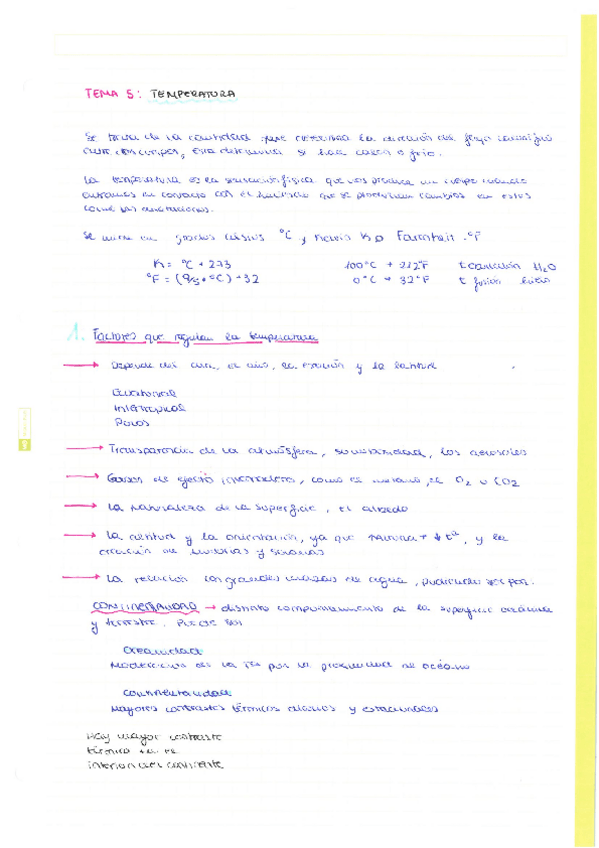 TEMA 5: TEMPERATURA
Se trata de la cantidad que determina la dirección del flujo
entre dos cuerpos, esta determina si hace calor o frío.
La temperatura es la sensación física que nos produce un cuerpo cuando
entramos en contacto con él haciendo que se produzcan cambios en estos
como las
Se mide en grados celsius °C y Kelvin K o Farenheit °F
K = °C + 273
100°C → 212°F t ebullición H2O
°F = (9/5 · °C) + 32
0°C → 32°F t fusión hielo
1. Factores que regulan la temperatura
→ Depende del día, el año, la estación y la latitud
Ecuatorial
Intertropical
Polos
→ Transparencia de la atmósfera, los aerosoles
→ Gases de efecto invernadero, como el metano, el O2 u CO2
→ La naturaleza de la superficie, el albedo
→ La altitud y la orientación, ya que ↓ tª, y la
creación de umbrías y solanas
→ La relación con grandes masas de agua, pudiendo ser por:
CONTINENTALIDAD → distinto comportamiento de la superficie oceánica
y terrestre. Puede ser
Oceanidad
Moderación de la Tª por la proximidad al océano
Continentalidad
Mayores contrastes térmicos diarios y estacionales
Hay mayor contraste
térmico en el
interior del continente